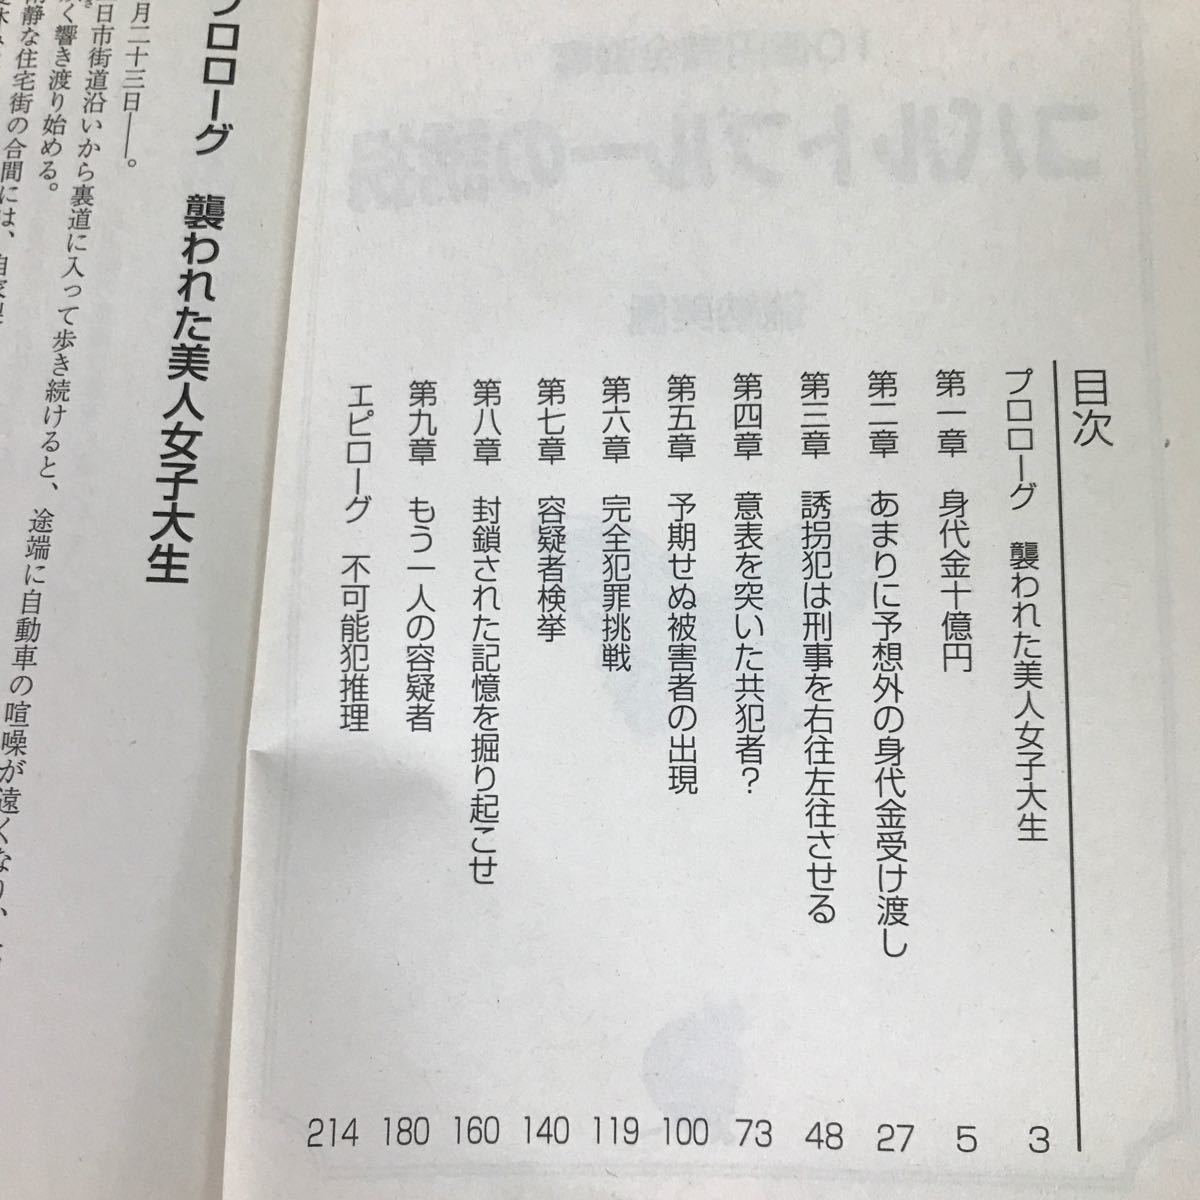 目次
プロローグ 襲われた美人女子大生 3
第一章 身代金十億円 5
第二章 あまりに予想外の身代金受け渡し 27
第三章 誘拐犯は刑事を右往左往させる 48
第四章 意表を突いた共犯者? 73
第五章 予期せぬ被害者の出現 100
第六章 完全犯罪挑戦 119
第七章 容疑者検挙 140
第八章 封鎖された記憶を掘り起こせ 160
第九章 もう一人の容疑者 180
エピローグ 不可能犯推理 214
プロローグ 襲われた美人女子大生
月二十三日――。
日市街道沿いから裏道に入って歩き続けると、途端に自動車の喧噪が遠くなり、
く響き渡り始める。
静な住宅街の合間には、